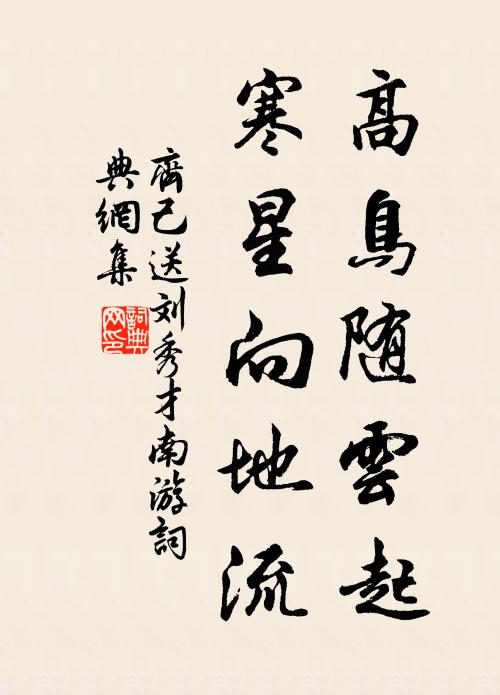 高鳥随雲起
寒星向地流
齊己送刘秀才南游詞
典網集
詞典网印